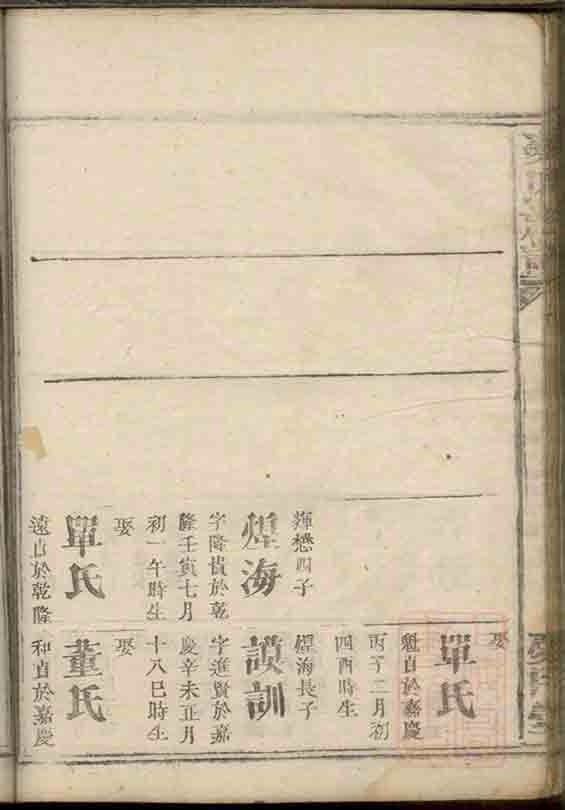 娶
單氏
魁貞於嘉慶
丙子二月初
四酉時生
煋海長子
謨訓
字進賢於嘉
慶辛未正月
十八巳時生
娶
董氏
和貞於嘉慶
輝懋四子
煋海
字隆貴於乾
隆壬寅七月
初一午時生
娶
單氏
遠貞於乾隆